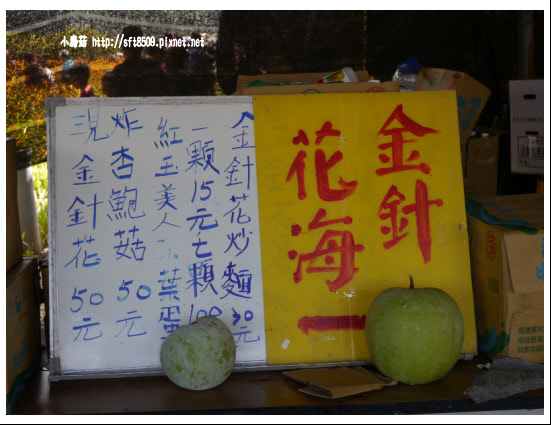 小蘑菇 http://sft8509.pixnet.net
金針
花海
金針花炒麵30元
一顆15元七顆100
紅玉美人茶葉蛋
炸杏鮑菇50元
現金針花50元